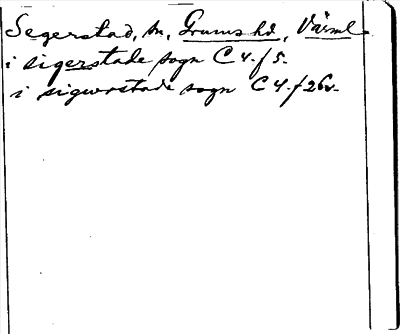 Segerstad, sn, Grums hd, Värml.
i sigerstade sogn C 4. f 5.
i sigworstade sogn C 4. f 26v.